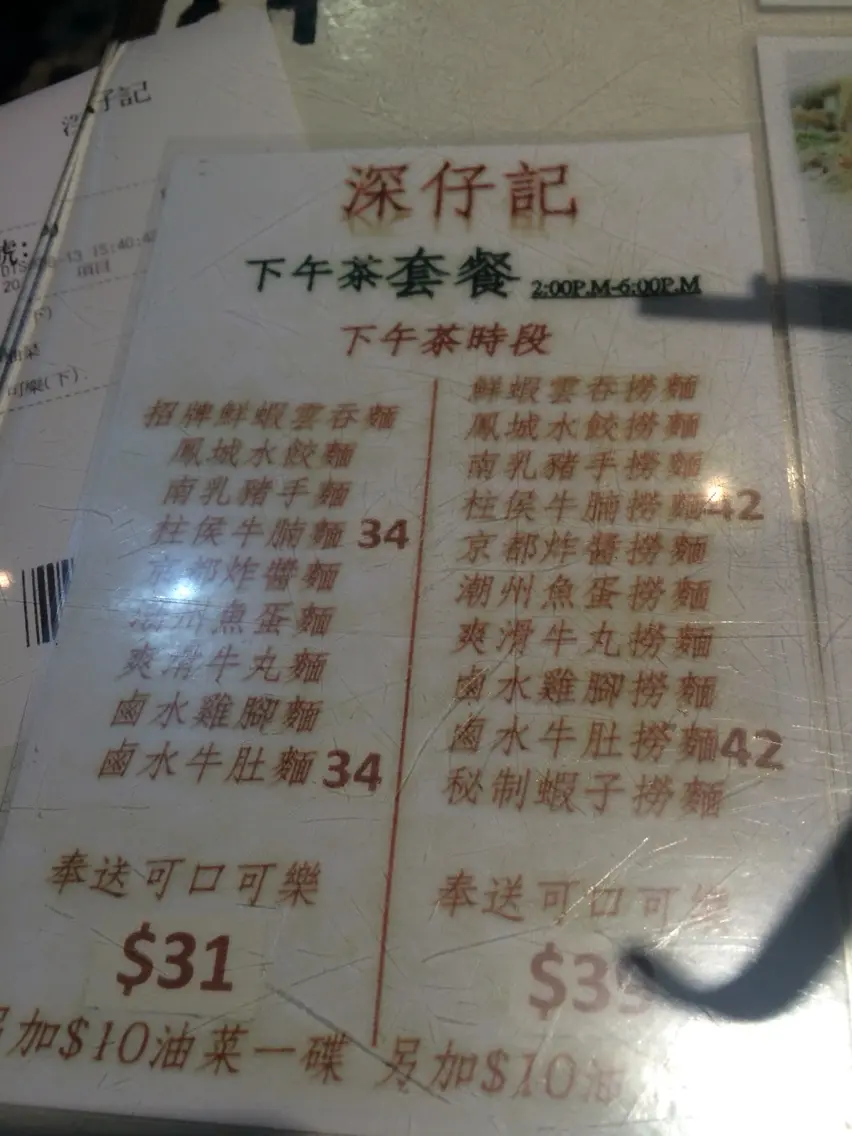 深仔記
下午茶套餐 2:00P.M-6:00P.M
下午茶時段
招牌鮮蝦雲吞麵
鳳城水餃麵
南乳豬手麵
柱侯牛腩麵 34
京都炸醬麵
潮州魚蛋麵
爽滑牛丸麵
鹵水雞腳麵
鹵水牛肚麵 34
奉送可口可樂
$31
另加$10油菜一碟
鮮蝦雲吞撈麵
鳳城水餃撈麵
南乳豬手撈麵
柱侯牛腩撈麵 42
京都炸醬撈麵
潮州魚蛋撈麵
爽滑牛丸撈麵
鹵水雞腳撈麵
鹵水牛肚撈麵 42
秘制蝦子撈麵
奉送可口可樂
$39
另加$10油
深仔記
號:
15:40:4
項目
可樂(下)